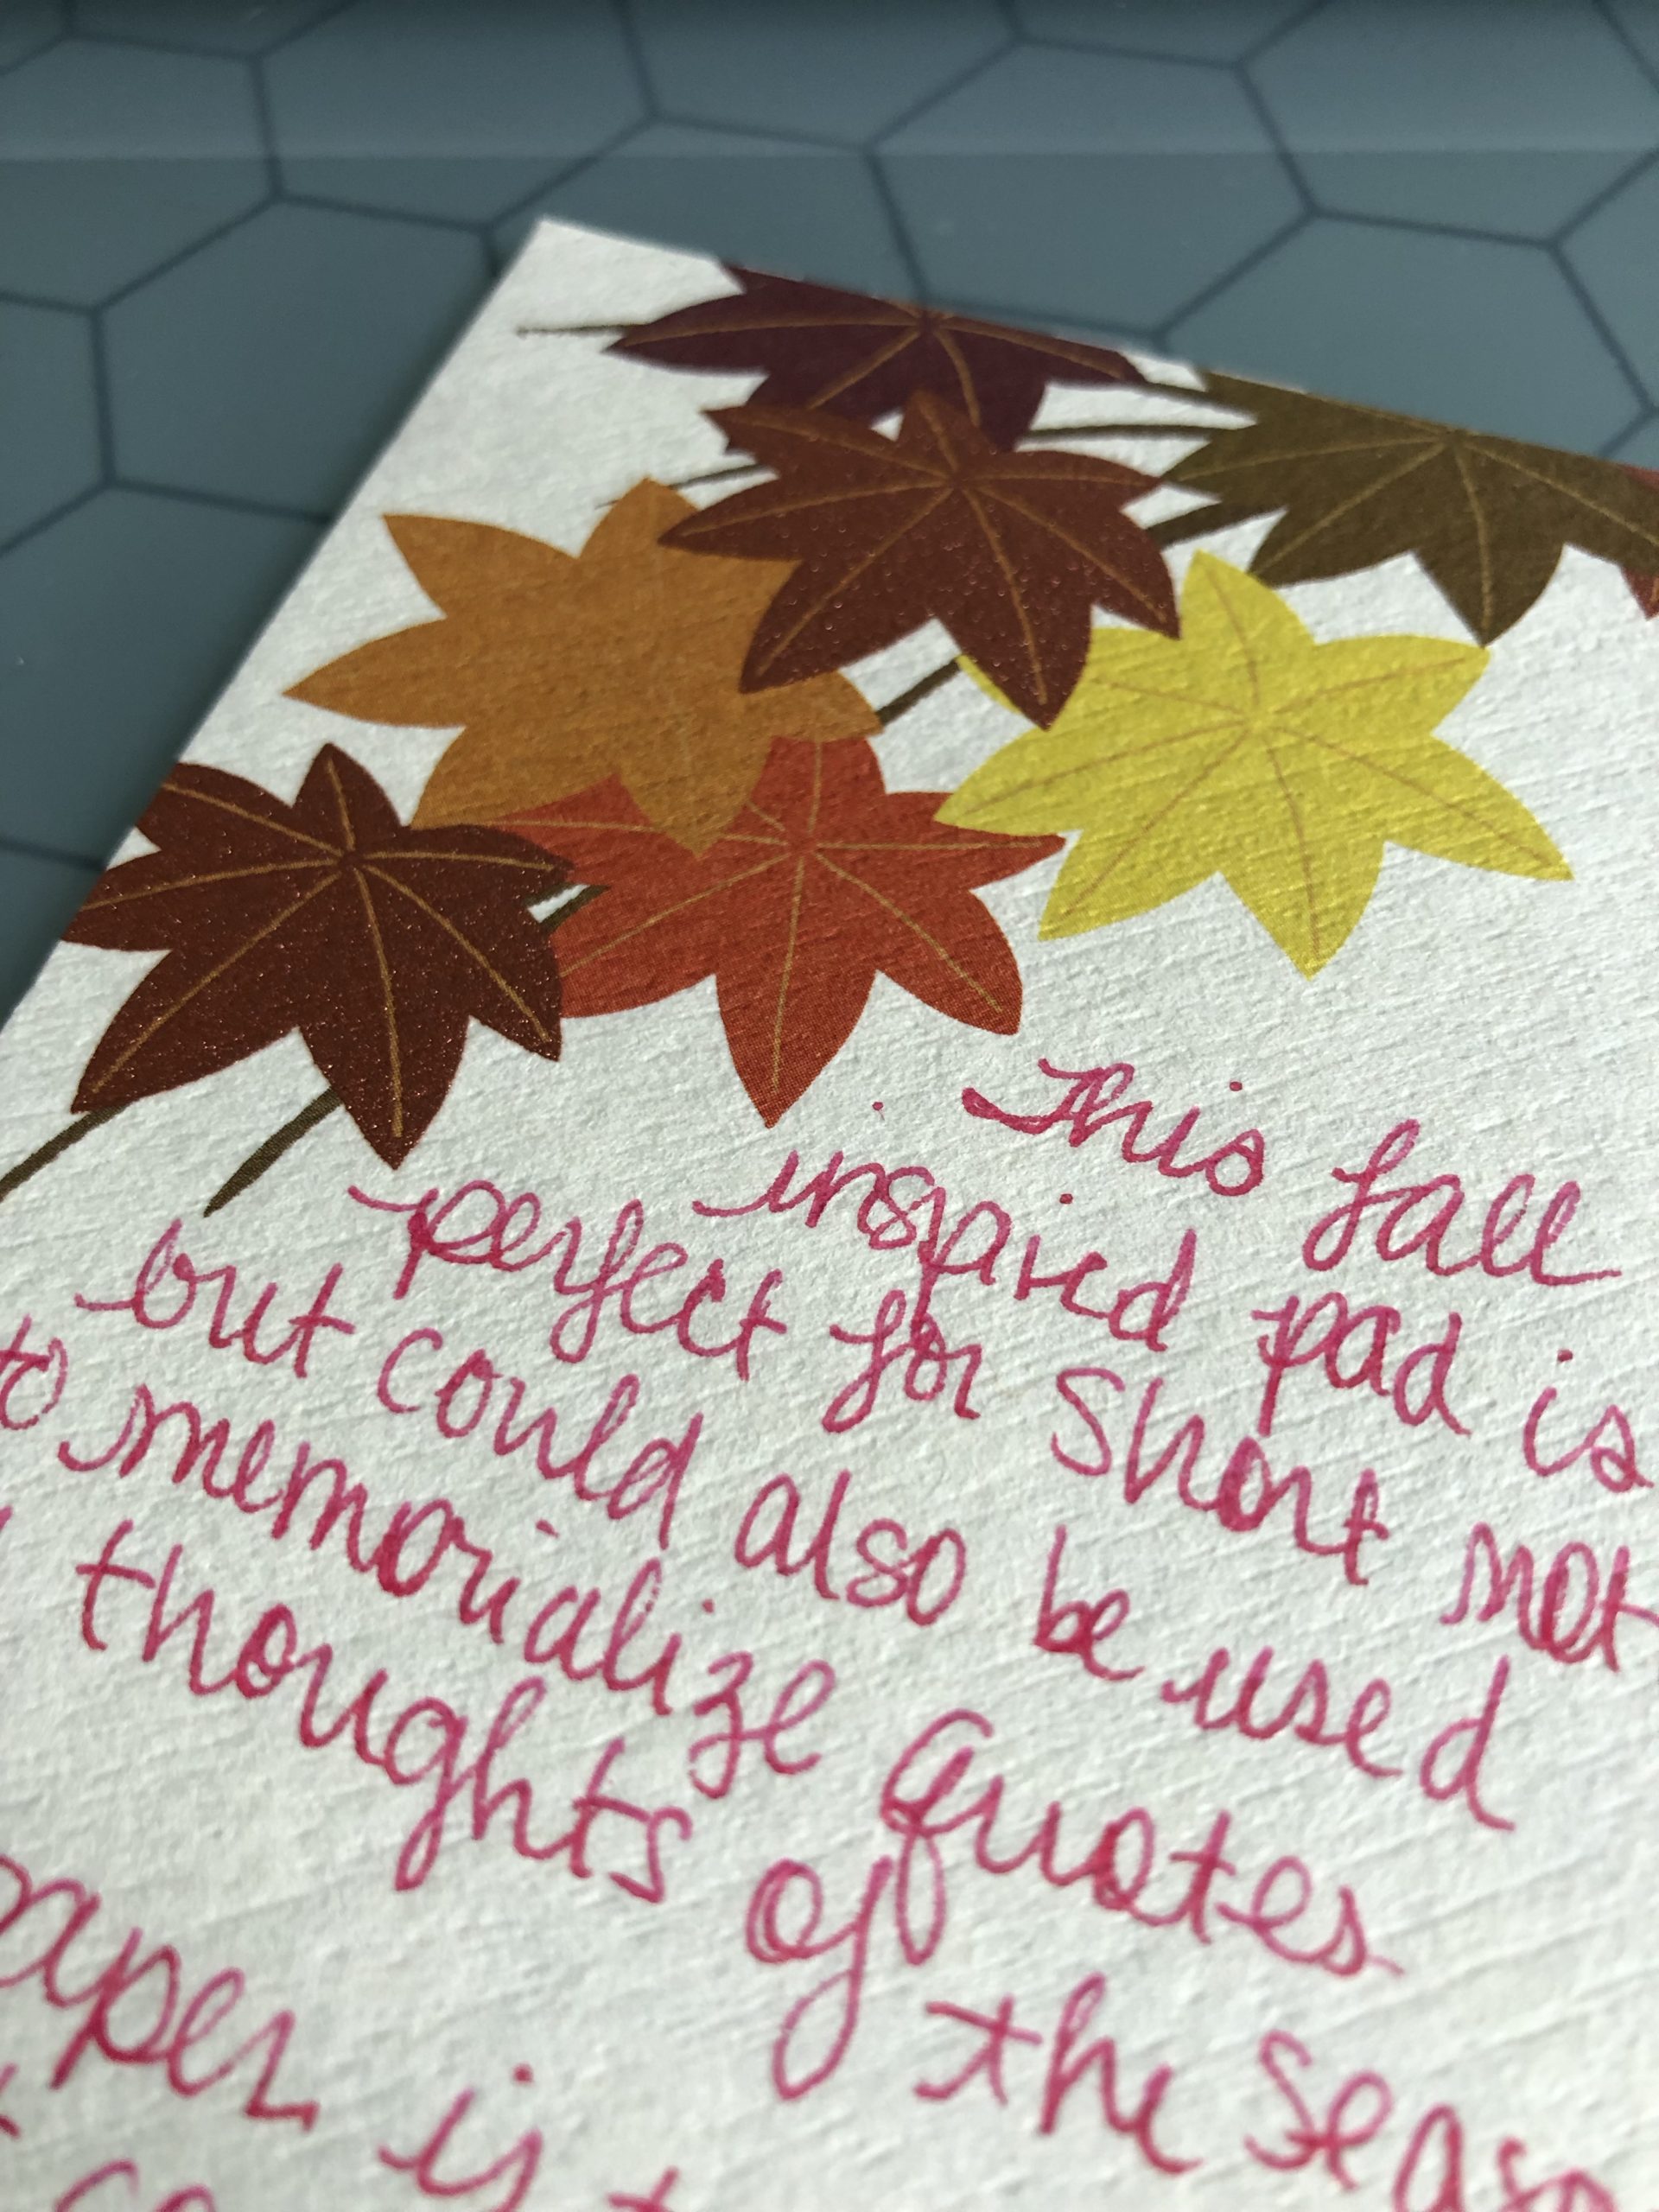 This fall
inspired pad is
perfect for short not
but could also be used
to memorialize quotes
thoughts of the seaso
aper is